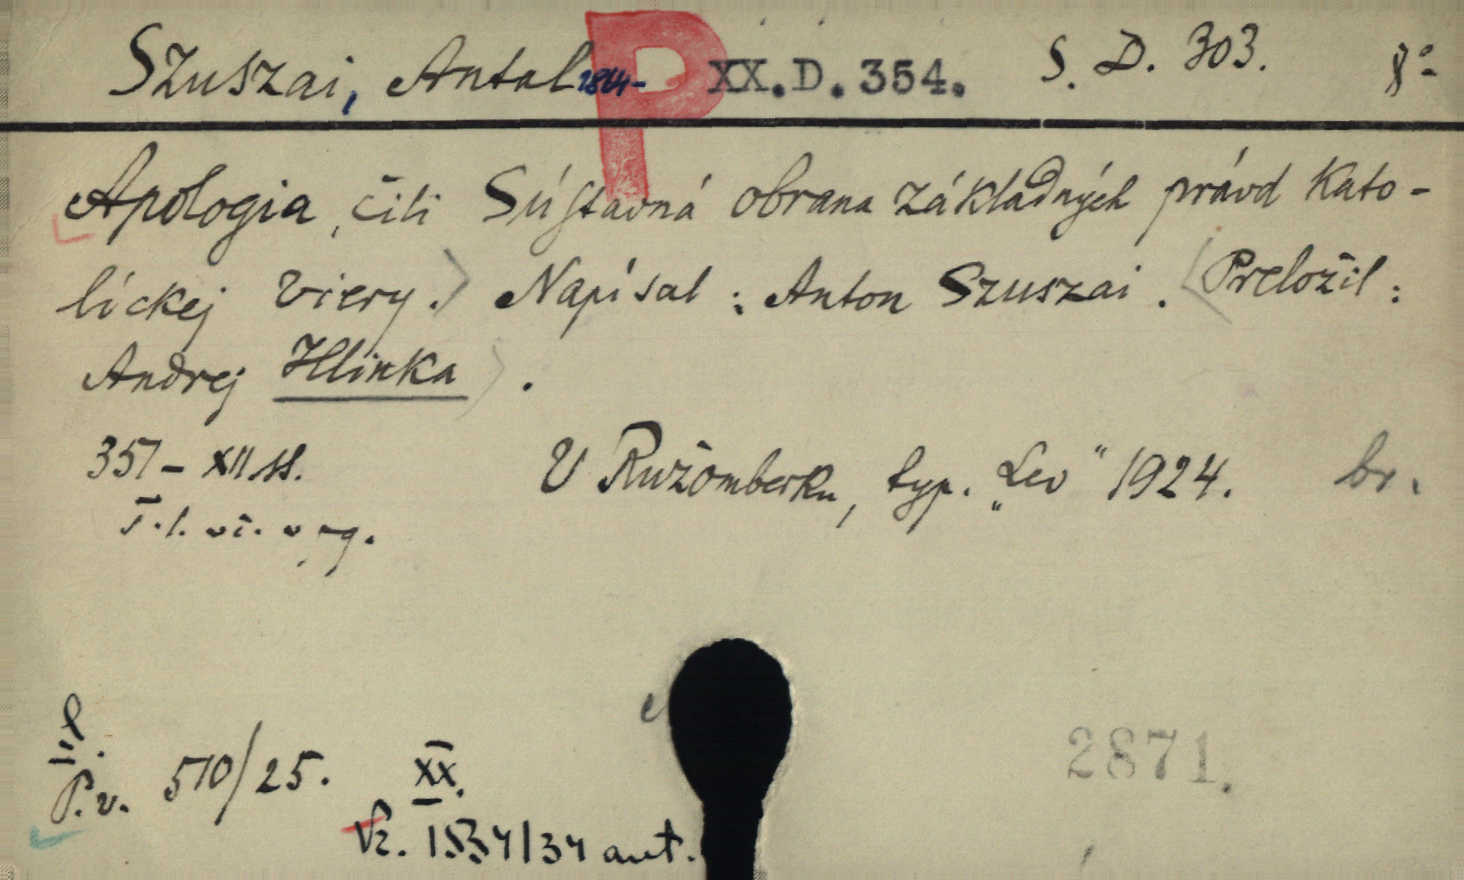 Szuszai, Antal 1864- P XX.D.354. S. D. 303. 8°
Apologia, čili Sústavná obrana základných právd kato-
líckej viery.) Napísal: Anton Szuszai. (Preložil:
Andrej Hlinka).
357 - XII ss. V Ružomberku, typ. „Lev" 1924. br.
P.v. 510/25. XX.
Vz. 1534/34 aut.
2871.